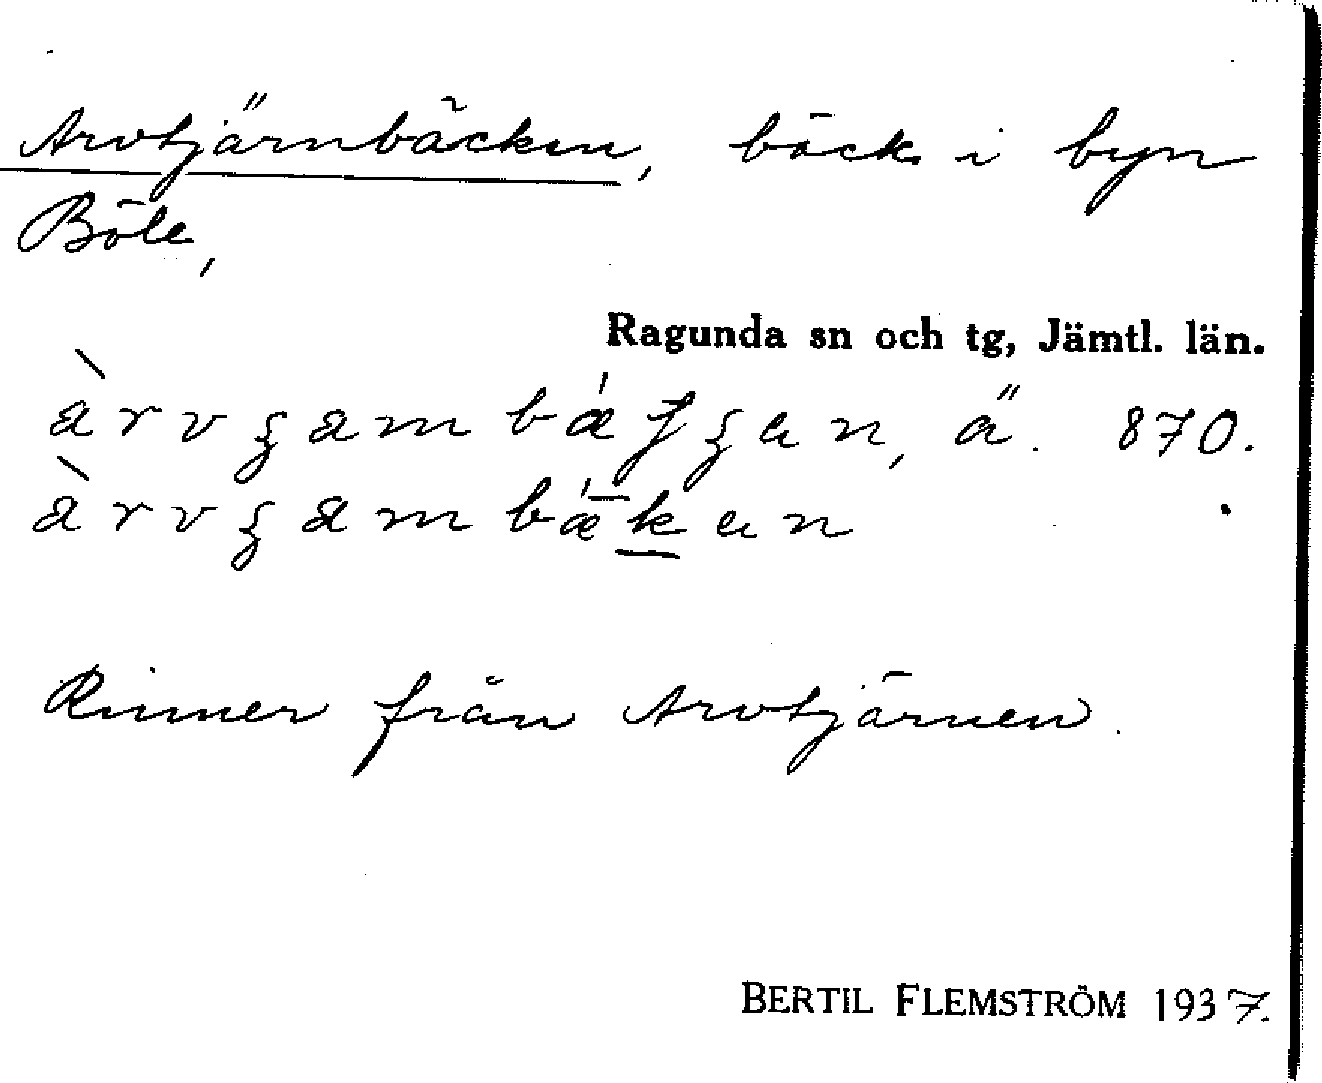 Arvtjärnbäcken, bäck i byn
Böle,
Ragunda sn och tg, Jämtl. län.
ä. 870.
Rinner från Arvtjärnen.
BERTIL FLEMSTRÖM 1937.